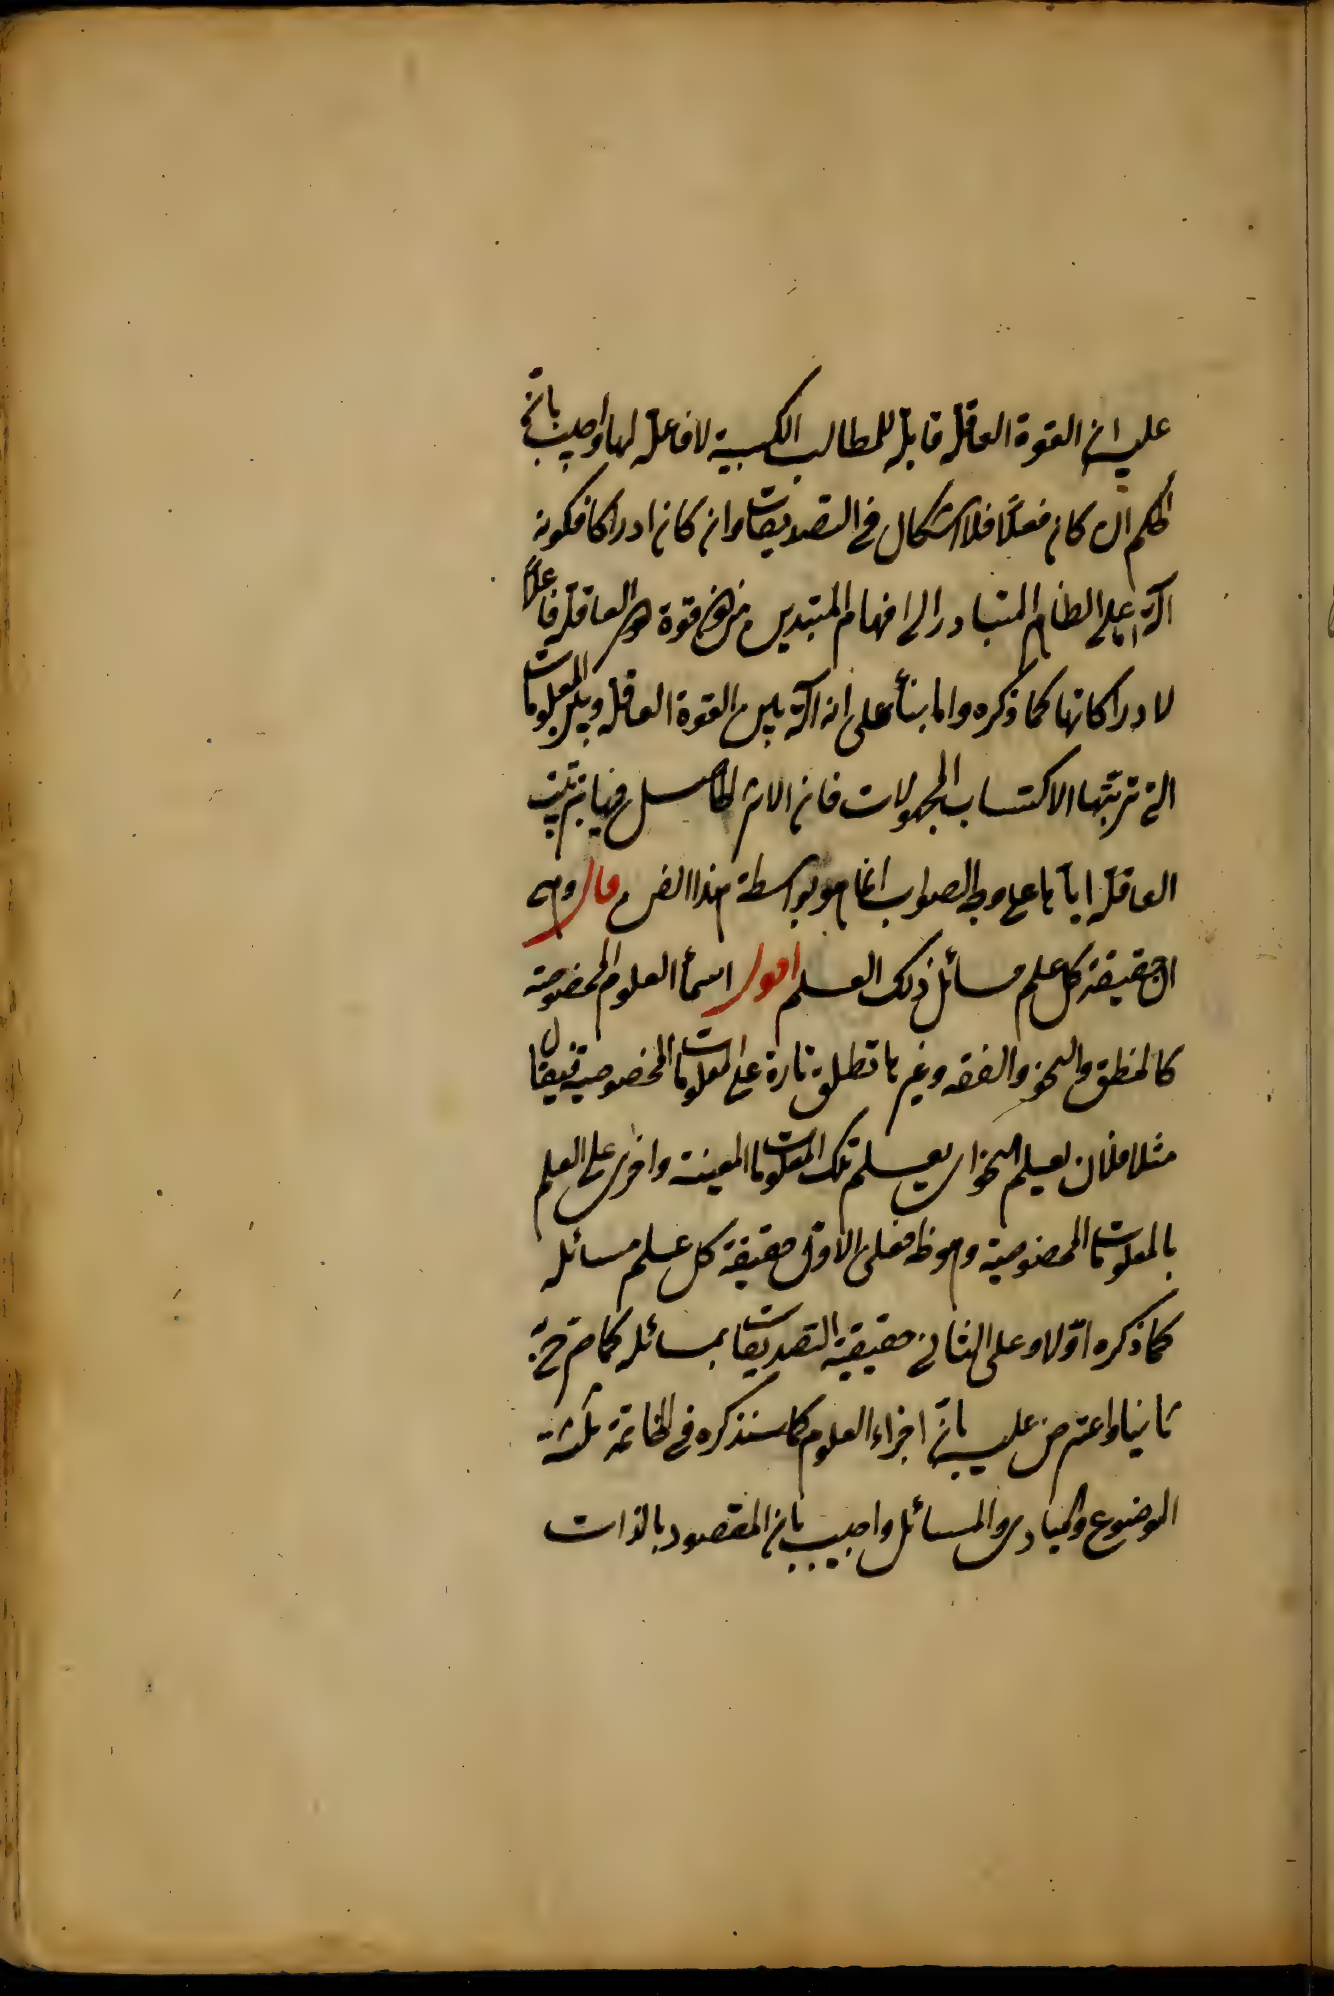 عليه ان القوة العاقلة قابلة للمطالب الكسبية لا فاعلة لها واجيب بان
الحكم ان كان فعلا فلا اشكال في التصديقات وان كان ادراكا فكونه
آلة اما على الظاهر المتبادر الى افهام المبتدين من ان قوة هو العاقلة فاعلة
لادراكاتها كما ذكره واما بناء على انه آلة بين القوة العاقلة وبين المعلومات
التي ترتبها لاكتساب المجهولات فان الاثر الحاصل فيها بترتيب
العاقلة اياها على وجه الصواب انما هو بواسطة هذا الفن قال
ان حقيقة كل علم مسائل ذلك العلم اقول اسماء العلوم المخصوصة
كالمنطق والنحو والفقه وغيرها تطلق تارة على المعلومات المخصوصة فيقال
مثلا فلان يعلم النحو اي يعلم تلك المعلومات المعينة واخرى على العلم
بالمعلومات المخصوصة وهو ظ فعلى الاول حقيقة كل علم مسائله
كما ذكره اولا وعلى الثاني حقيقة التصديقات بمسائله كما صرح به
ثانيا واعترض عليه بان اجزاء العلوم كما سنذكره في الخاتمة ثلثة
الموضوع والمبادى والمسائل واجيب بان المقصود بالذات